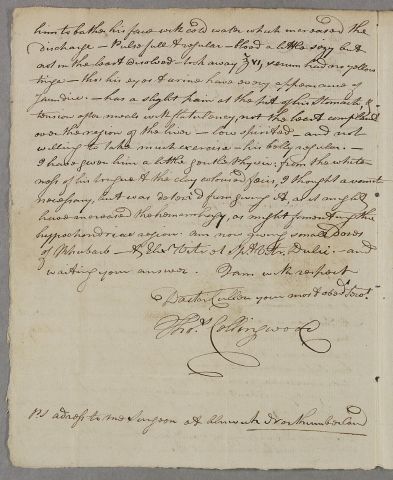 him to bathe his face with cold water which increased the
discharge — Pulse full & regular — blood a little sizy but
not in the least dissolved — took away ℥xi, serum had no yellow
tinge — tho' his eyes & urine have every appearance of
Jaundice — has a slight pain at the pit of his Stomach, &
tension after meals with flatulency, not the least complaint
over the region of the liver — low spirited — and not
willing to take much exercise — his belly regular. —
I have given him a little gentle physic; from the white-
ness of his tongue & the clay coloured faeces, I thought a vomit
necessary, but was deterr'd from giving it, as it might
have increased the hemorrhagy, as might fomenting the
hypochondriac region. Am now giving small Doses
of Rhubarb — & Elixr Vitr: et Spt: Vitr. Dulci: and
waiting your answer. I am with respect
Doctor Cullen your most obedt Servt.
Thos. Collingwood
PS adress to me Surgeon at Alnwick Northumberland